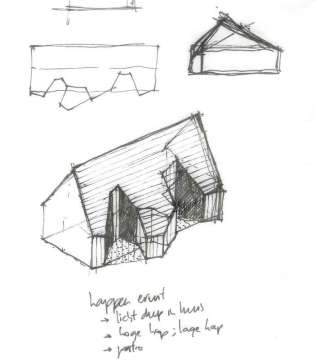 happen eruit
→ licht diep in huis
→ hoge hap ; lage hap
→ patio